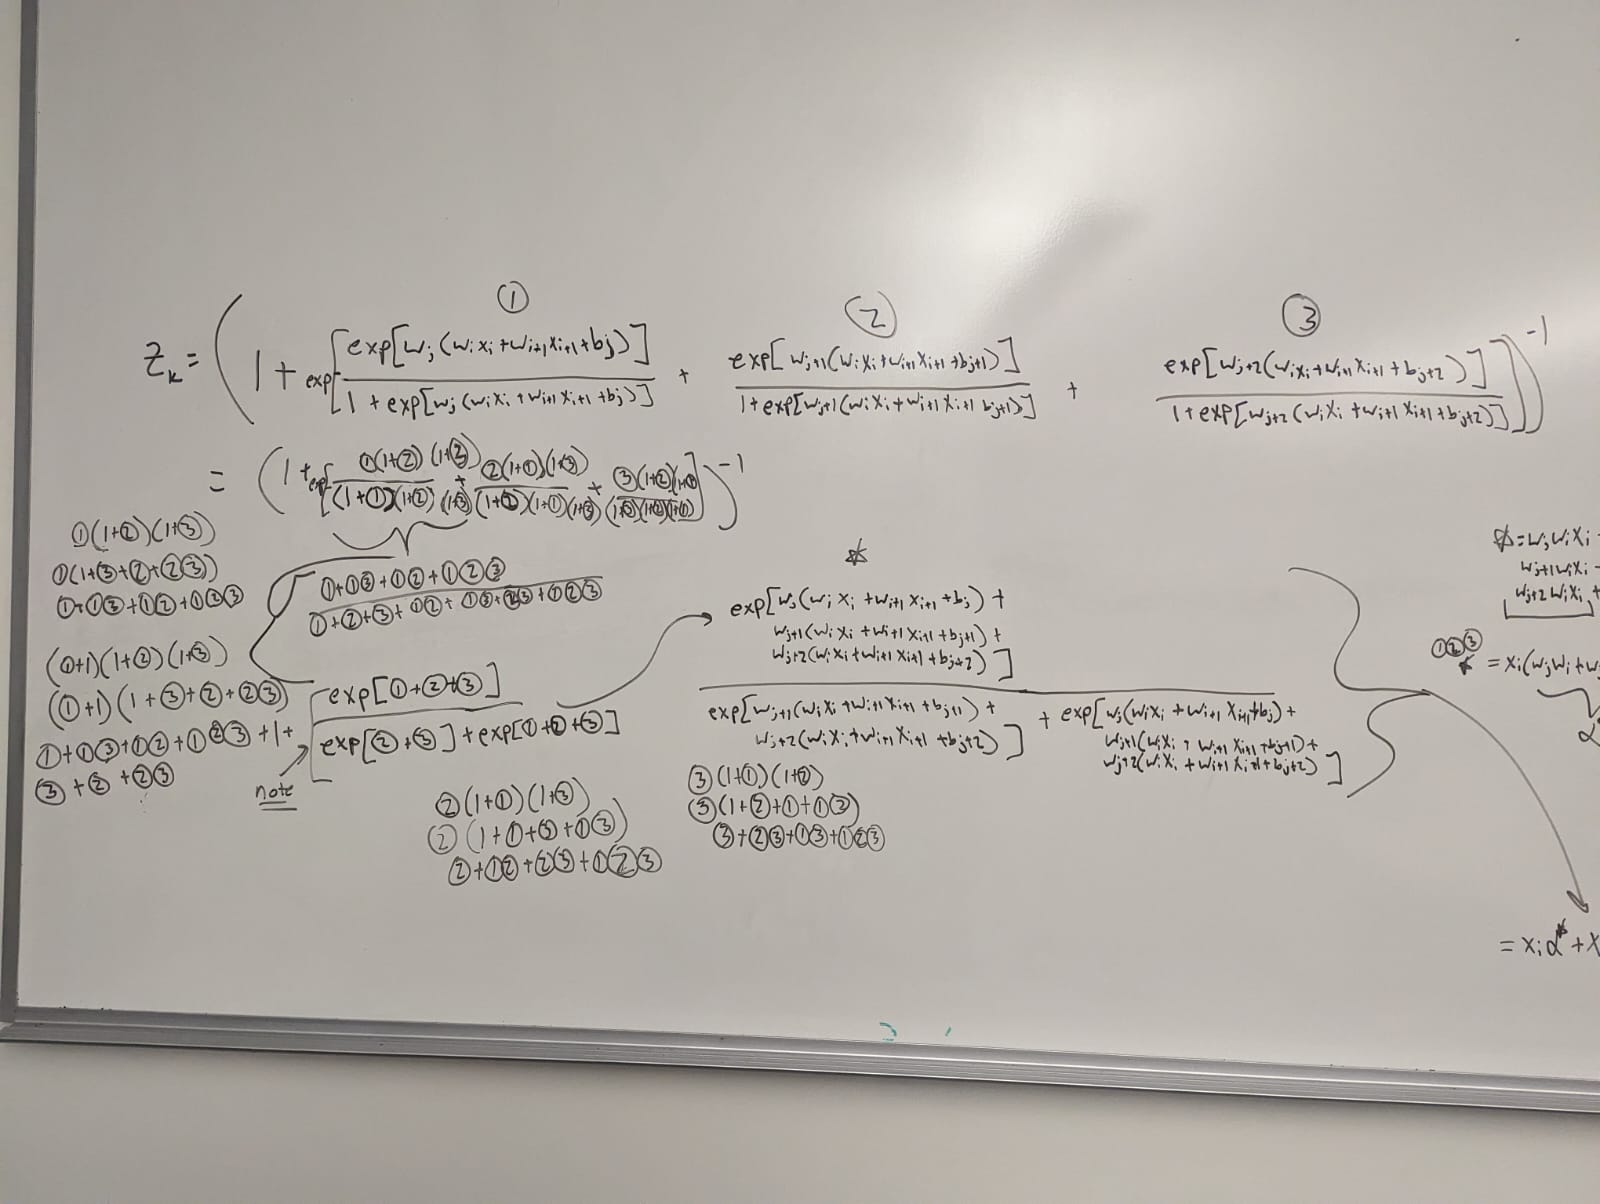 ① ② ③
Z_k = ( 1 + exp[ exp[w_j(w_i x_i + w_{i+1} x_{i+1} + b_j)] / 1 + exp[w_j(w_i x_i + w_{i+1} x_{i+1} + b_j)] + exp[w_{j+1}(w_i x_i + w_{i+1} x_{i+1} + b_{j+1})] / 1 + exp[w_{j+1}(w_i x_i + w_{i+1} x_{i+1} b_{j+1})] + exp[w_{j+2}(w_i x_i + w_{i+1} x_{i+1} + b_{j+2})] / 1 + exp[w_{j+2}(w_i x_i + w_{i+1} x_{i+1} + b_{j+2})] ] )^{-1}
= ( 1 + exp[ ①(1+②)(1+③) / (1+①)(1+②)(1+③) + ②(1+①)(1+③) / (1+②)(1+①)(1+③) + ③(1+②)(1+①) / (1+③)(1+②)(1+①) ] )^{-1}
①(1+②)(1+③)
①(1+③+②+②③)
①+①③+①②+①②③
(①+1)(1+②)(1+③)
(①+1)(1+③+②+②③)
①+①③+①②+①②③+1+
③+②+②③
①+①③+①②+①②③
①+②+③+①②+①③+②③+①②③
exp[①+②+③]
exp[②+③]+exp[①+②+③]
note
②(1+①)(1+③)
②(1+①+③+①③)
②+①②+②③+①②③
☆
exp[w_j(w_i x_i + w_{i+1} x_{i+1} + b_j) +
w_{j+1}(w_i x_i + w_{i+1} x_{i+1} + b_{j+1}) +
w_{j+2}(w_i x_i + w_{i+1} x_{i+1} + b_{j+2})]
exp[w_{j+1}(w_i x_i + w_{i+1} x_{i+1} + b_{j+1}) + + exp[w_j(w_i x_i + w_{i+1} x_{i+1} + b_j) +
w_{j+2}(w_i x_i + w_{i+1} x_{i+1} + b_{j+2})] w_{j+1}(w_i x_i + w_{i+1} x_{i+1} + b_{j+1}) +
w_{j+2}(w_i x_i + w_{i+1} x_{i+1} + b_{j+2})]
③(1+①)(1+②)
③(1+②+①+①②)
③+②③+①③+①②③
☆ = w_j w_i x_i
w_{j+1} w_i x_i
w_{j+2} w_i x_i +
①②③
☆ = x_i(w_j w_i + w
α
= x_i α^☆ + x